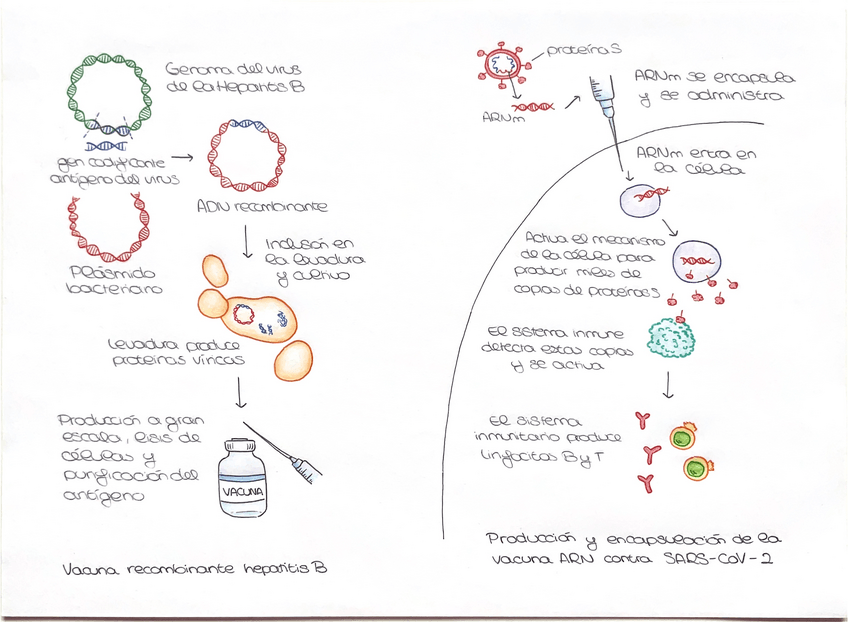 Genoma del virus
de la Hepatitis B
gen codificante
antígeno del virus
Plásmido
bacteriano
ADN recombinante
Inclusión en
la levadura
y cultivo
Levadura produce
proteínas víricas
Producción a gran
escala, lisis de
células y
purificación del
antígeno
VACUNA
Vacuna recombinante hepatitis B
proteína S
ARNm
ARNm se encapsula
y se administra
ARNm entra en
la célula
Activa el mecanismo
de la célula para
producir miles de
copias de proteínas
El sistema inmune
detecta estas copias
y se activa
El sistema
inmunitario produce
linfocitos B y T
Producción y encapsulación de la
vacuna ARN contra SARS-CoV-2